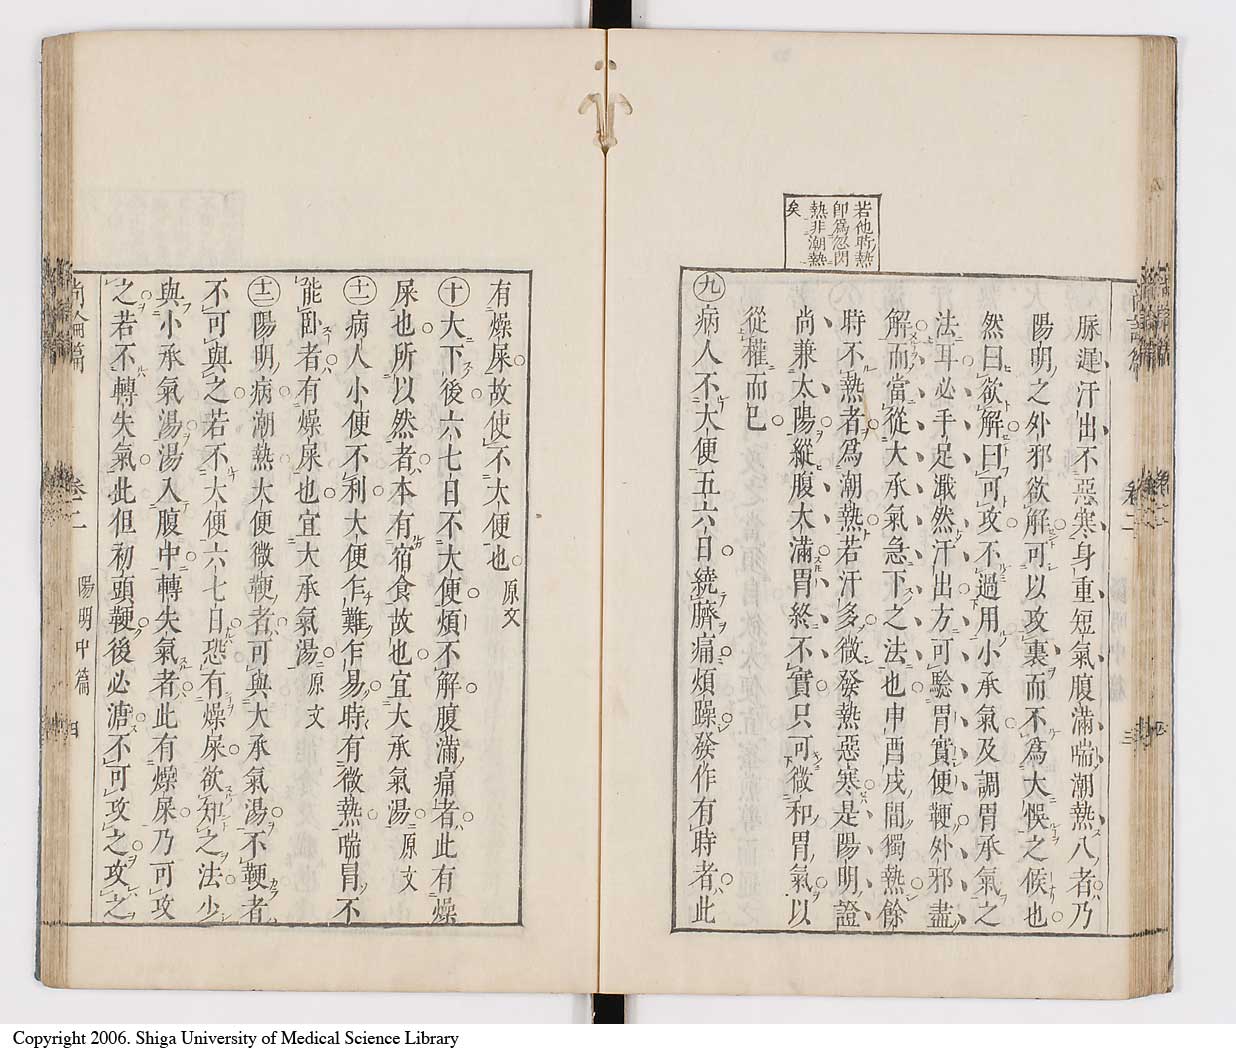 若他時熱
卽爲忽閃
熱非潮熱
矣
脉遲汗出不惡寒身重短氣腹滿喘潮熱八者乃
陽明之外邪欲解可以攻裏而不爲大悞之候也
然曰欲解曰可攻不過用小承氣及調胃承氣之
法耳必手足濈然汗出方可驗胃實便鞕外邪盡
解而當從大承氣急下之法也申酉戌間獨熱餘
時不熱者爲潮熱若汗多微發熱惡寒是陽明證
尚兼太陽縱腹大滿胃終不實只可微和胃氣以
從權而已
九病人不大便五六日繞臍痛煩躁發作有時者此
有燥屎故使不大便也原文
十大下後六七日不大便煩不解腹滿痛者此有燥
屎也所以然者本有宿食故也宜大承氣湯原文
十一病人小便不利大便乍難乍易時有微熱喘冒不
能臥者有燥屎也宜大承氣湯原文
十二陽明病潮熱大便微鞕者可與大承氣湯不鞕者
不可與之若不大便六七日恐有燥屎欲知之法少
與小承氣湯湯入腹中轉失氣者此有燥屎乃可攻
之若不轉失氣此但初頭鞕後必溏不可攻之攻之
尚論篇 卷二 陽明中篇 四
Copyright 2006. Shiga University of Medical Science Library